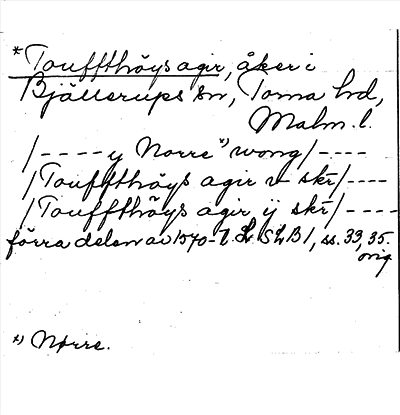 *Touffthöys agir, åker i
Bjällerups sn, Torna hrd,
Malm. l.
/---- y Norre*) wong/----
/Touffthöys agir v skr/----
/Touffthöys agir ij skr/----
förra delen av 1570-t. L SLB 1, ss. 33, 35.
orig
*) Nørre.